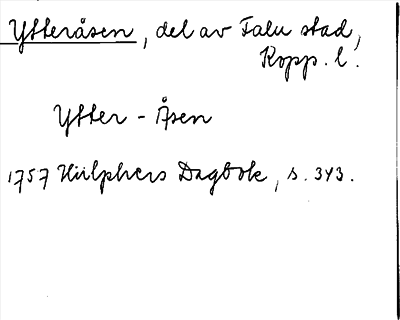 Ytteråsen, del av Falu stad,
Kopp. l.
Ytter-Åsen
1757 Hülphers Dagbok, s. 343.